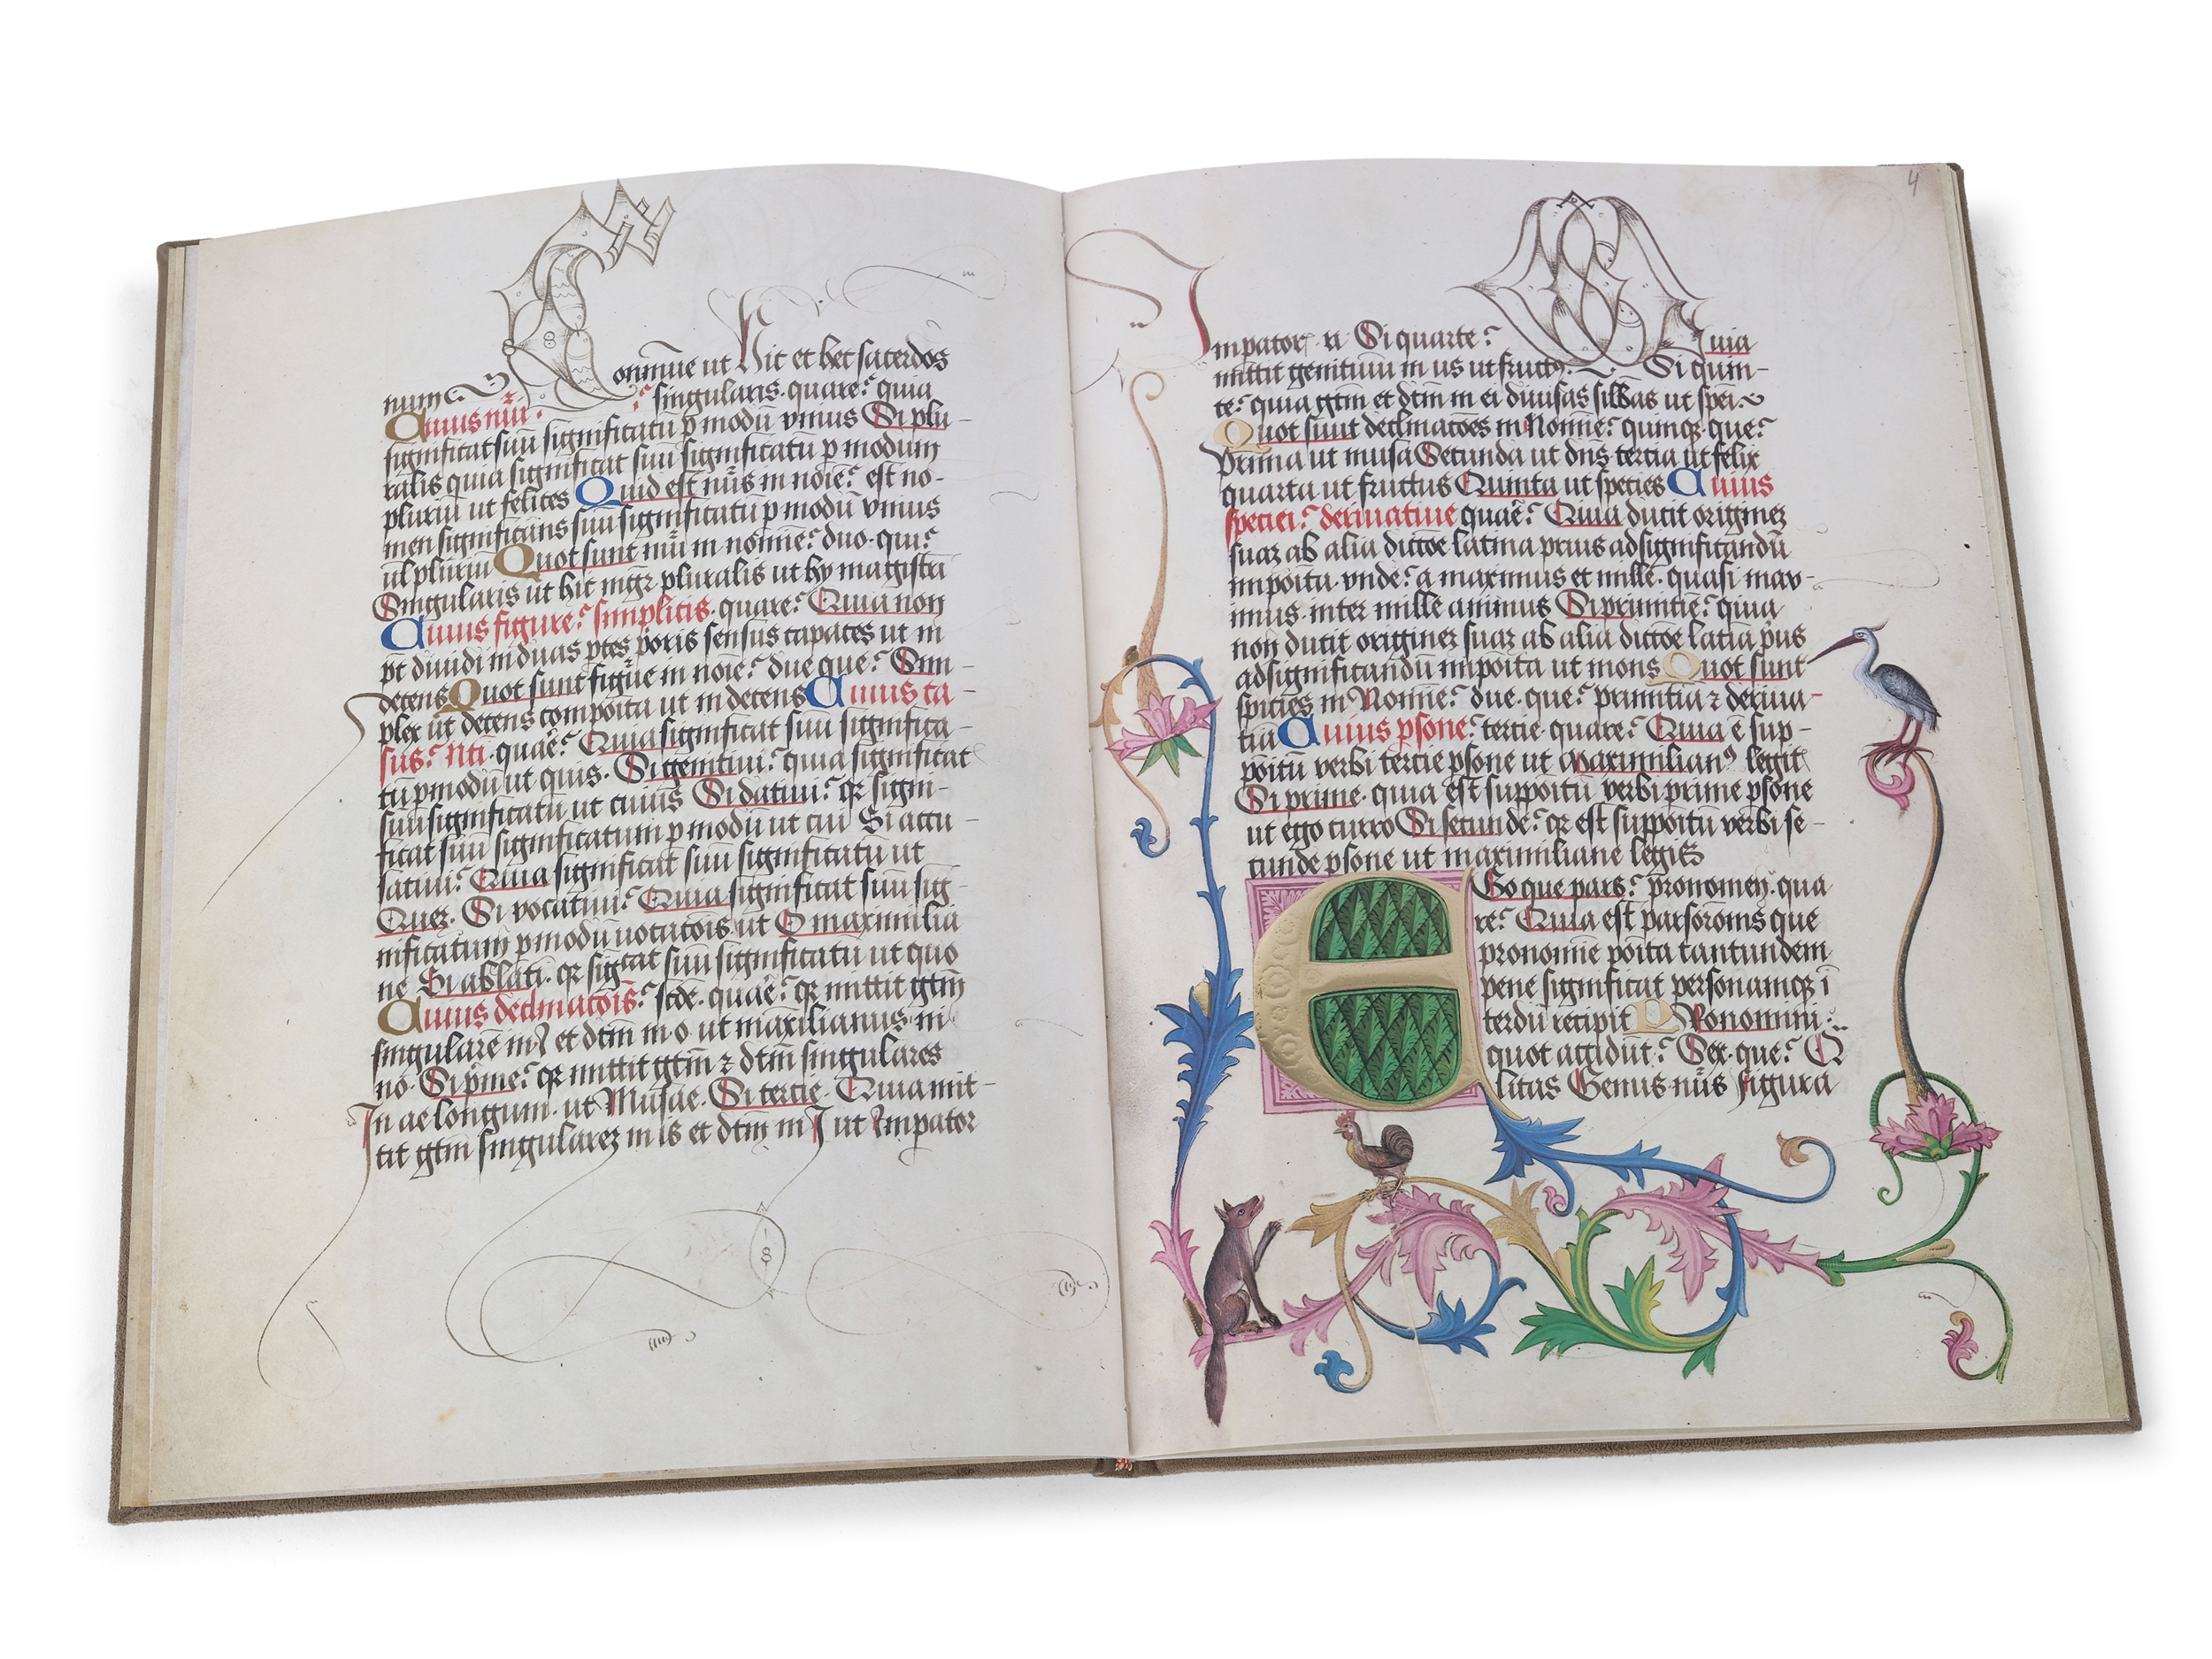 onmūe ut Hic et hec sacerdos
num
Cuius nūi? singularis. quare? quia
significat suū significatū p modū vnius Si plu-
ralis quia significat suū significatū p modum
pluriū ut felices Quid est nūs in noīe? est no-
men significans suū significatū p modū vnius
ul pluriū Quot sunt nūi in nomīe? duo. qui?
Singularis ut hic mgr pluralis ut hy magistri
Cuius figure? simplicis. quare? Quia non
pt diuidi in duas ptes poris sensus capaces ut in
decens Quot sunt figure in noīe? due que? Sim-
plex ut decens composita ut indecens Cuius ca-
sus? Nti. quaē? Quia significat suū significa-
tū p modū ut quis. Si genitiui? quia significat
suū significatū ut cuius Si datiui? qr signi-
ficat suū significatum p modū ut cui Si accu-
satiui? Quia significat suū significatū ut
Quez. Si vocatiui? Quia significat suū sig-
nificatum p modū uocatōis ut O maximilia
ne Si ablati. qr sigcat suū significatū ut quo
Cuius declinatōis? scde. quaē? qr mittit gtm
singularē in i et dtm in o ut maxilianus. ni
no. Si pme? qr mittit gtm ⁊ dtm singulares
In ae longum. ut Musae. Si tercie. Quia mit-
tit gtm singularez in is et dtm in I ut Impator
4
Impator ri Si quarte? Quia
mittit genitiuū in us ut fructꝰ. Si quin-
te? quia gtm et dtm in ei diuisas sillbas ut spei.
Quot sunt declinatōes in Nomīe? quinqꝫ. que?
Prima ut musa Secunda ut dns tercia ut felix
quarta ut fructus Quinta ut species Cuius
speciei? deriuatiue quaē? Quia ducit originez
suaz ab alia dictōe latina prius adsignificandū
imposita. vnde? a maximus et mille. quasi max-
imus. inter mille animus Si primitiē? quia
non ducit originez suaz ab alia dictōe latīa pus
adsignificandū imposita ut mons Quot sunt
species in Nomīe? due. que? primitia ⁊ deriua-
tia Cuius psone? tercie. quare? Quia ē sup-
poitū verbi tercie psone ut Maximilianꝰ legit
Si prime. quia est suppoitū verbi prime psone
ut ego curro Si secunde? qr est suppoitū verbi se-
cunde psone ut maximiliane legis
EGo que pars? pronomen. qua
re? Quia est pars orōnis que
pronomīe poita tantundem
pene significat personamqꝫ ī
terdū recipit PRonomini.
quot accidūt? Sex. que? Q
litas Genus. nūs figura